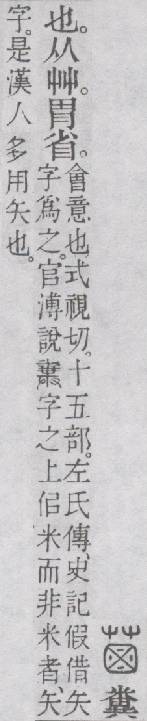 𦳊 糞
也。从艸。胃省。
會意也。式視切。十五部。左氏傳、史記假借矢
字爲之。官溥說糞字之上佀米而非米者、矢
字。是漢人多用矢也。